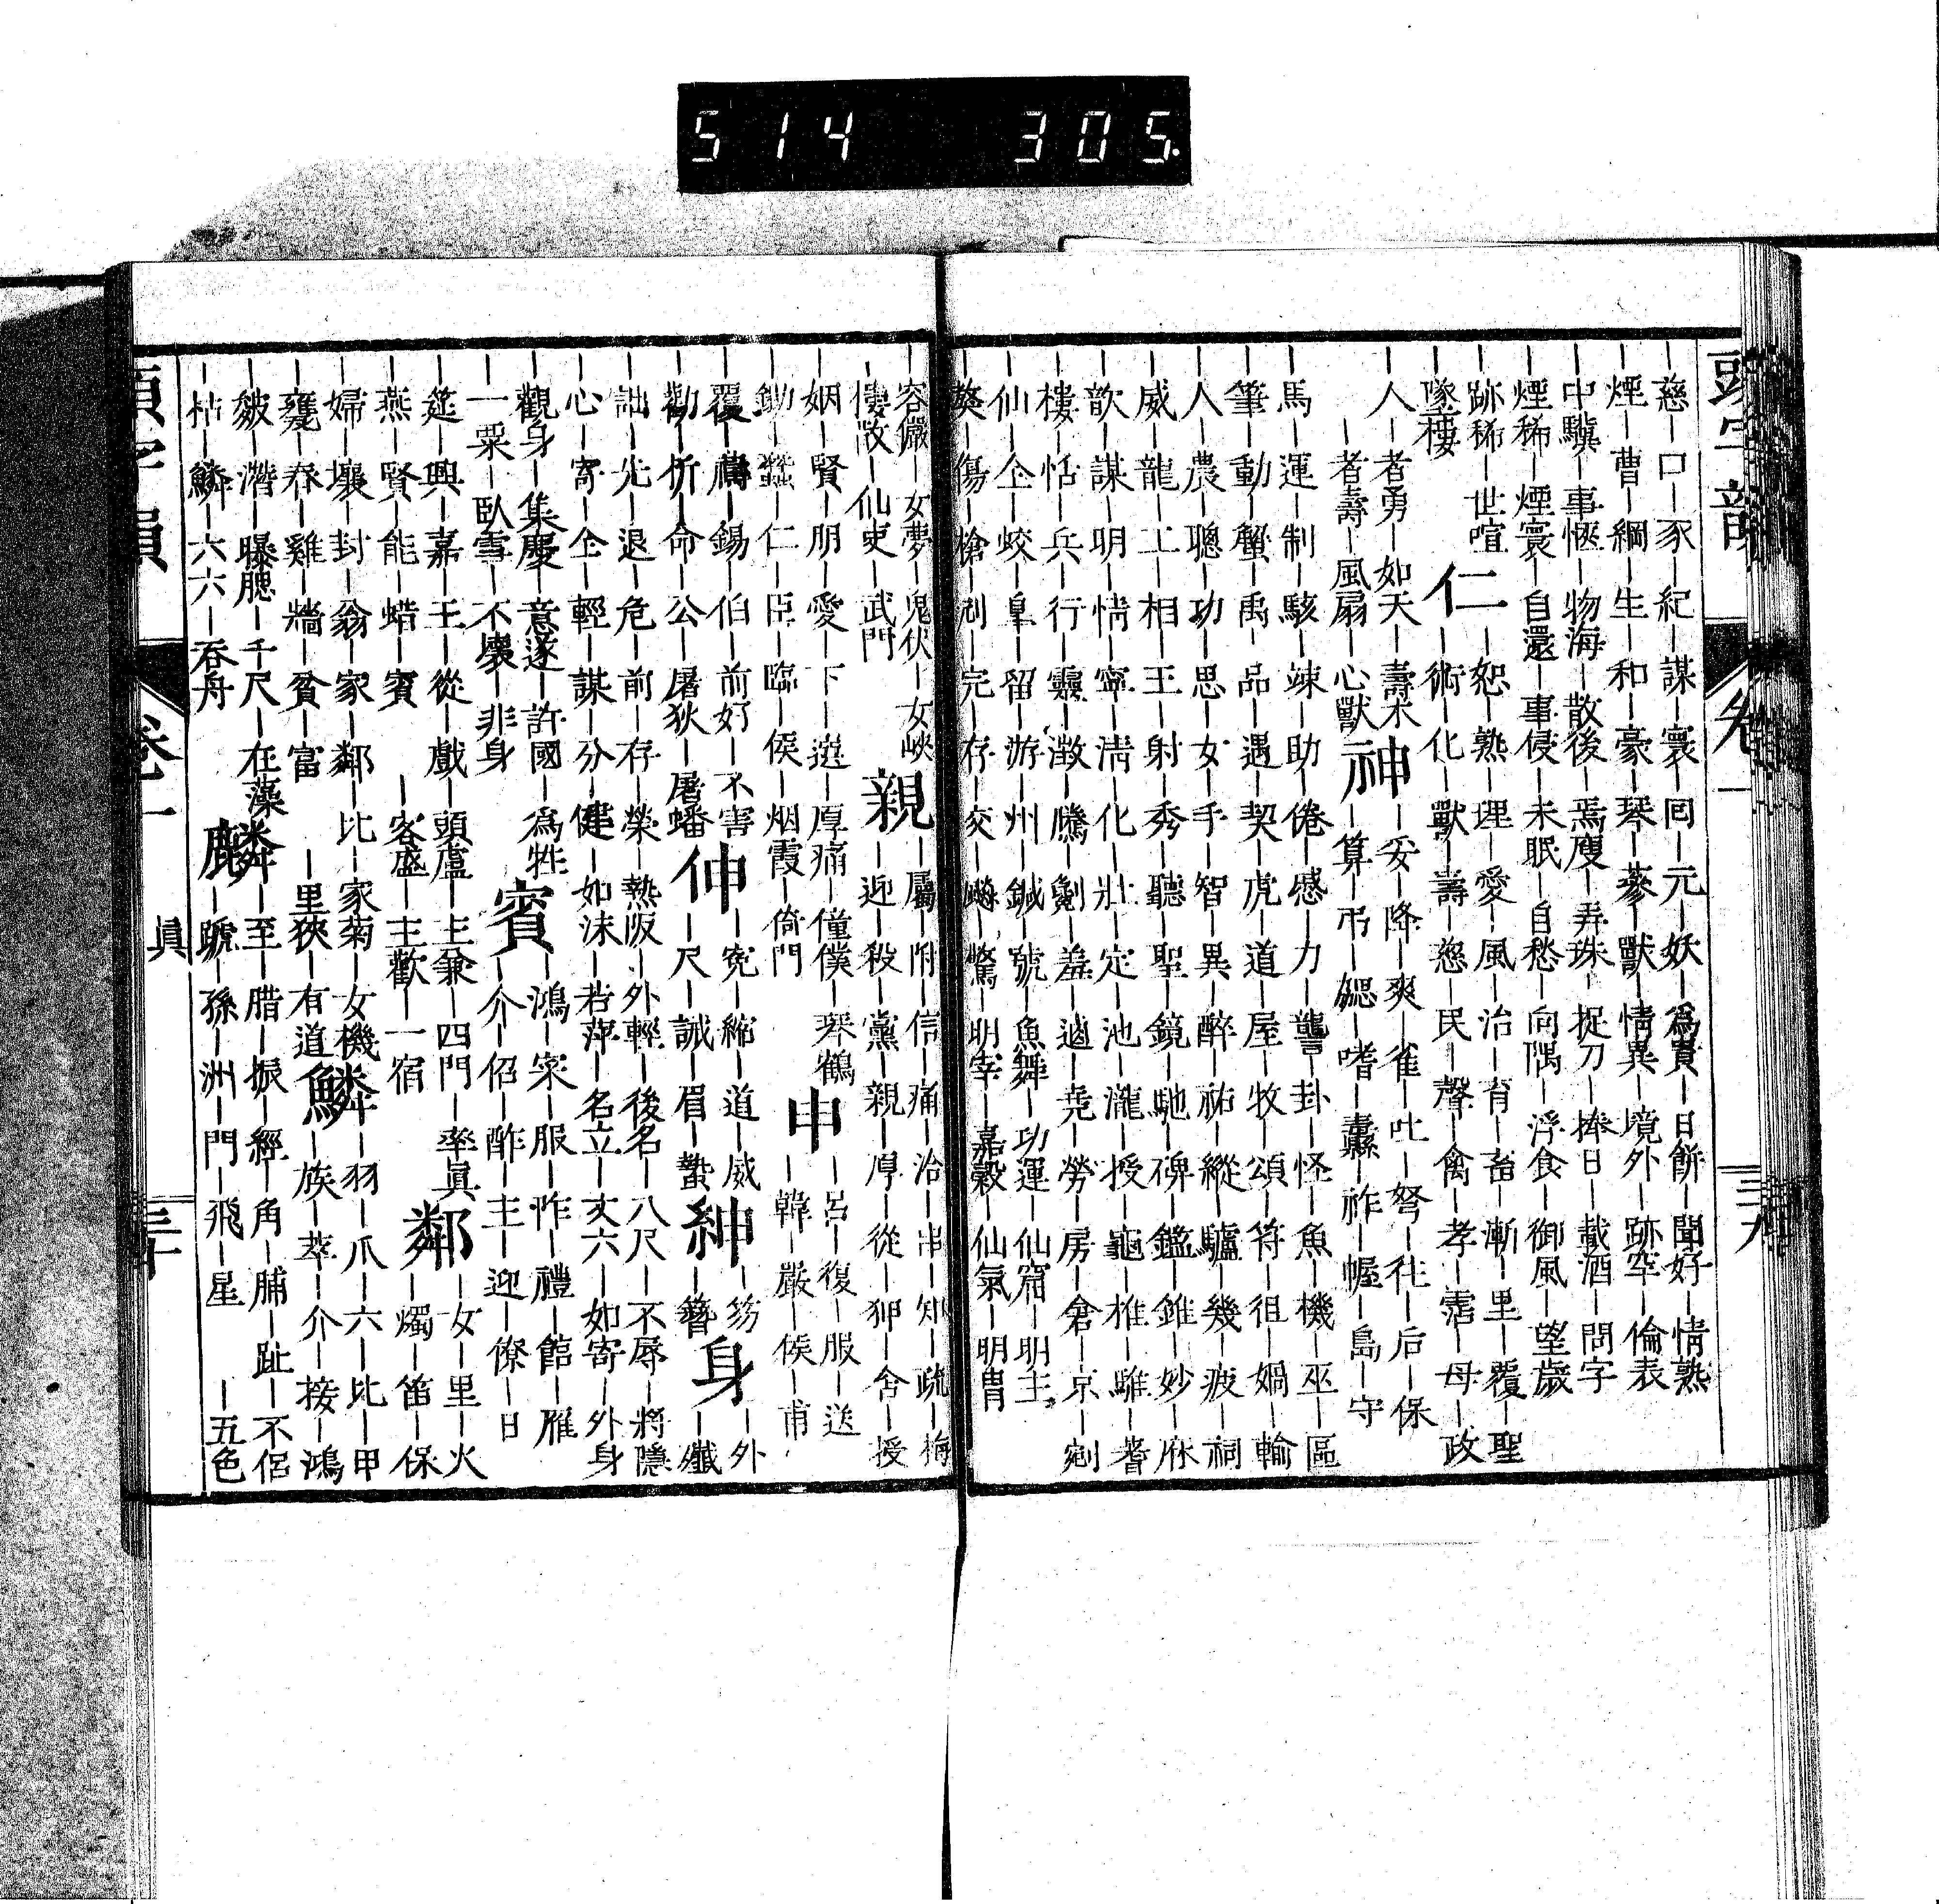 514 305.
頭字韻 卷一 三十九
｜慈｜口｜豕｜紀｜謀｜寰｜囘｜元｜妖｜爲貴｜日餅｜聞好｜情熟
｜煙｜曹｜綱｜生｜和｜豪｜琴｜蔘｜獸｜情異｜境外｜跡空｜倫表
｜中驥｜事愜｜物海｜散後｜焉廋｜弄珠｜捉刀｜捧日｜載酒｜問字
｜煙稀｜煙寰｜自還｜事侵｜未眠｜自愁｜向隅｜浮食｜御風｜望歲
｜跡稀｜世喧｜恕｜熟｜理｜愛｜風｜治｜育｜畜｜漸｜里｜覆｜聖
｜墜樓 仁｜術｜化｜獸｜壽｜慈｜民｜聲｜禽｜孝｜霑｜母｜政
｜人｜者勇｜如天｜壽木｜妥｜降｜爽｜雀｜吐｜弩｜往｜后｜保
｜者壽｜風扇｜心獸 神｜算｜弔｜媼｜嗜｜纛｜祚｜幄｜島｜守
｜馬｜運｜制｜駭｜竦｜助｜倦｜感｜力｜聽｜卦｜怪｜魚｜機｜巫｜區
｜筆｜動｜蟹｜禹｜品｜遇｜契｜虎｜道｜屋｜牧｜頌｜符｜徂｜媧｜輸
｜人｜農｜聰｜功｜思｜女｜手｜智｜異｜醉｜祐｜縱｜驢｜幾｜疲｜祠
｜威｜龍｜工｜相｜王｜射｜秀｜聽｜聖｜鏡｜馳｜碑｜鑑｜錐｜妙｜庥
｜歆｜謀｜明｜情｜寧｜淸｜化｜壯｜定｜池｜瀧｜授｜龜｜椎｜騅｜蓍
｜樓｜恬｜兵｜行｜靈｜澂｜騰｜劍｜羞｜遒｜堯｜勞｜房｜倉｜京｜剜
｜仙｜仝｜蛟｜皇｜留｜游｜州｜鍼｜號｜魚舞｜功運｜仙窟｜明主
｜獒｜傷｜槍｜利｜完｜存｜交｜驚｜明宰｜嘉穀｜仙氣｜明胄
｜容儼｜女夢｜鬼伏｜女峽｜屬｜附｜信｜痛｜治｜串｜知｜疏｜梅
｜樓敞｜仙吏｜武門 親｜迎｜殺｜黨｜親｜厚｜從｜狎｜舍｜授
｜姻｜賢｜朋｜愛｜下｜送｜厚痛｜僮僕｜琴鶴｜呂｜復｜服｜送
｜鋤｜蠶｜仁｜臣｜臨｜侯｜烟霞｜倚門 申｜韓｜嚴｜侯｜甫
｜覆｜禱｜錫｜伯｜前好｜不害｜寃｜縮｜道｜威｜笏｜外
｜勸｜折｜命｜公｜屠狄｜屠蟠 伸｜尺｜誠｜眉｜蟄 紳｜簪 身｜殲
｜詘｜光｜退｜危｜前｜存｜榮｜熱阪｜外輕｜後名｜八尺｜不辱｜將隱
｜心｜寄｜仝｜輕｜謀｜分｜健｜如沫｜若萍｜名立｜丈六｜如寄｜外身
｜觀身｜集慶｜意遂｜許國｜爲牲｜鴻｜宋｜服｜作｜禮｜館｜雁
｜一粟｜臥雪｜不壞｜非身 賓｜介｜佋｜酢｜主｜迎｜僚｜日
｜筵｜興｜嘉｜王｜從｜戲｜頭盧｜主兼｜四門｜率眞｜女｜里｜火
｜燕｜賢｜能｜蜡｜賓｜客盛｜主歡｜一宿 鄰｜燭｜笛｜保
｜婦｜壤｜封｜翁｜家｜鄰｜比｜家菊｜女機｜羽｜爪｜六｜比｜甲
｜甕｜舂｜雞｜牆｜貧｜富｜里狹｜有道 鱗｜族｜萃｜介｜接｜鴻
｜皴｜潛｜曝腮｜千尺｜在藻｜至｜腊｜振｜經｜角｜脯｜趾｜不侶
｜枯｜鱗｜六六｜吞舟 麟｜號｜孫｜洲｜門｜飛｜星｜五色
眞
頭字韻 卷一 三十